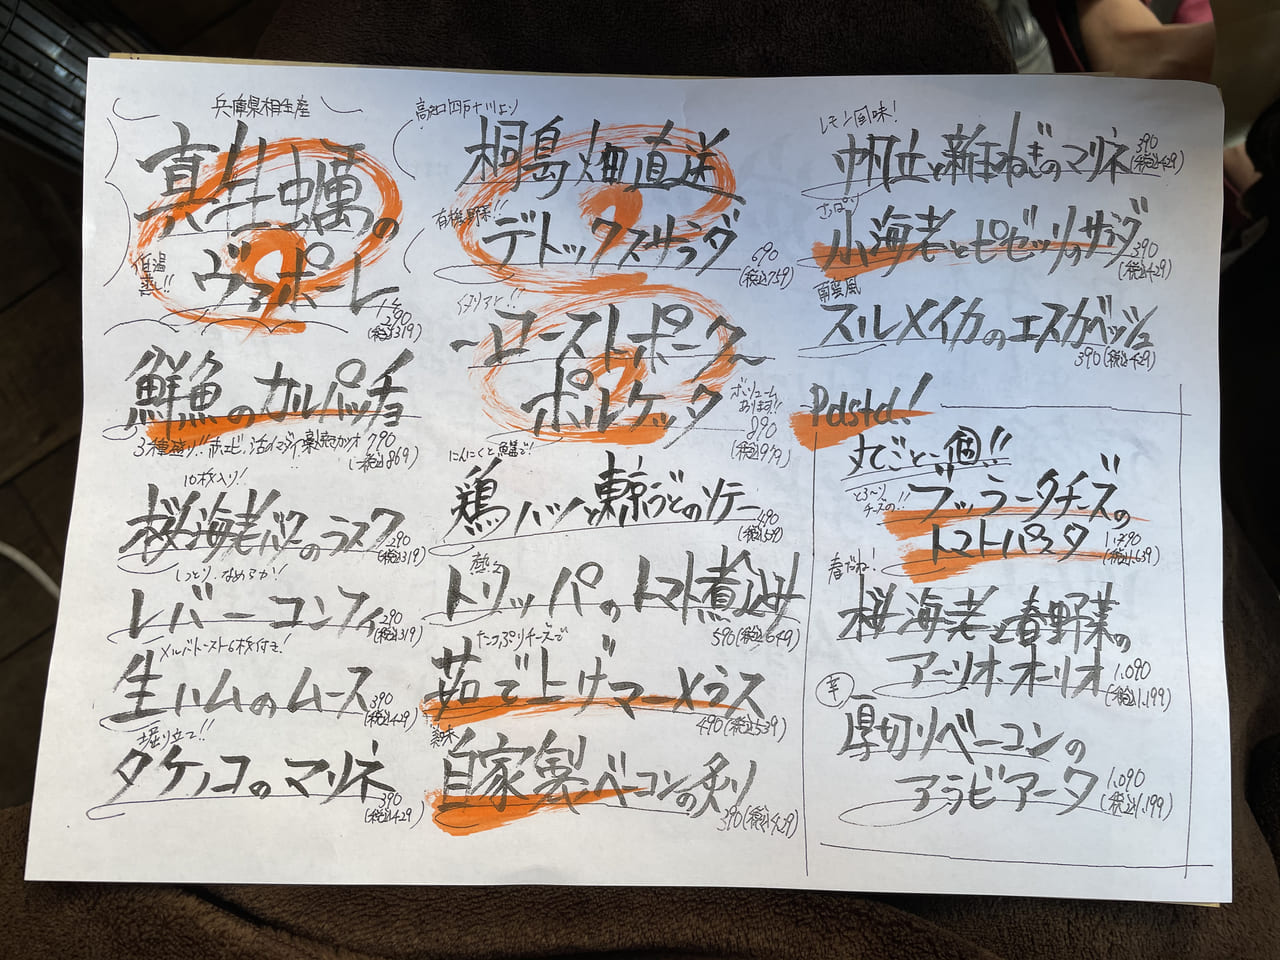 兵庫県相生産
真牡蠣の
ヴァポーレ
低温
蒸し!!
1ケ
290
(税込319)
鮮魚のカルパッチョ
3種盛り!! 赤エビ、活〆マダイ、藁焼きカツオ 790
(税込869)
10枚入り!
桜海老バターのラスク
290
(税込319)
しっとり、なめらか!!
レバーコンフィ
290
(税込319)
メルバトースト6枚付き!
生ハムのムース
390
(税込429)
堀り立て!!
タケノコのマリネ
390
(税込429)
高知四万十川より
桐島畑直送
有機野菜!!
デトックスサラダ
690
(税込759)
イタリアと!!
〜ローストポーク〜
ポルケッタ
ボリューム
あります!!
890
(税込979)
にんにくと魚醤で!
鶏ハツと東京うどのソテー
490
(税込539)
熱々
トリッパのトマト煮込み
590(税込649)
たっぷりチーズで
茹で上げマーメラス
490(税込539)
薫味
自家製ベーコンの炙り
390(税込429)
レモン風味!
帆立と新玉ねぎのマリネ
390
(税込429)
さっぱり
小海老とピゼッリのサラダ
390
(税込429)
南蛮風
スルメイカのエスカベッシュ
390(税込429)
Pasta!
丸ごと一個!!
とろ〜り
チーズの!!
ブッラータチーズの
トマトパスタ
1.490
(税込1.639)
春だね!
桜海老と春野菜の
アーリオオーリオ
1.090
(税込1.199)
辛
厚切りベーコンの
アラビアータ
1.090
(税込1.199)